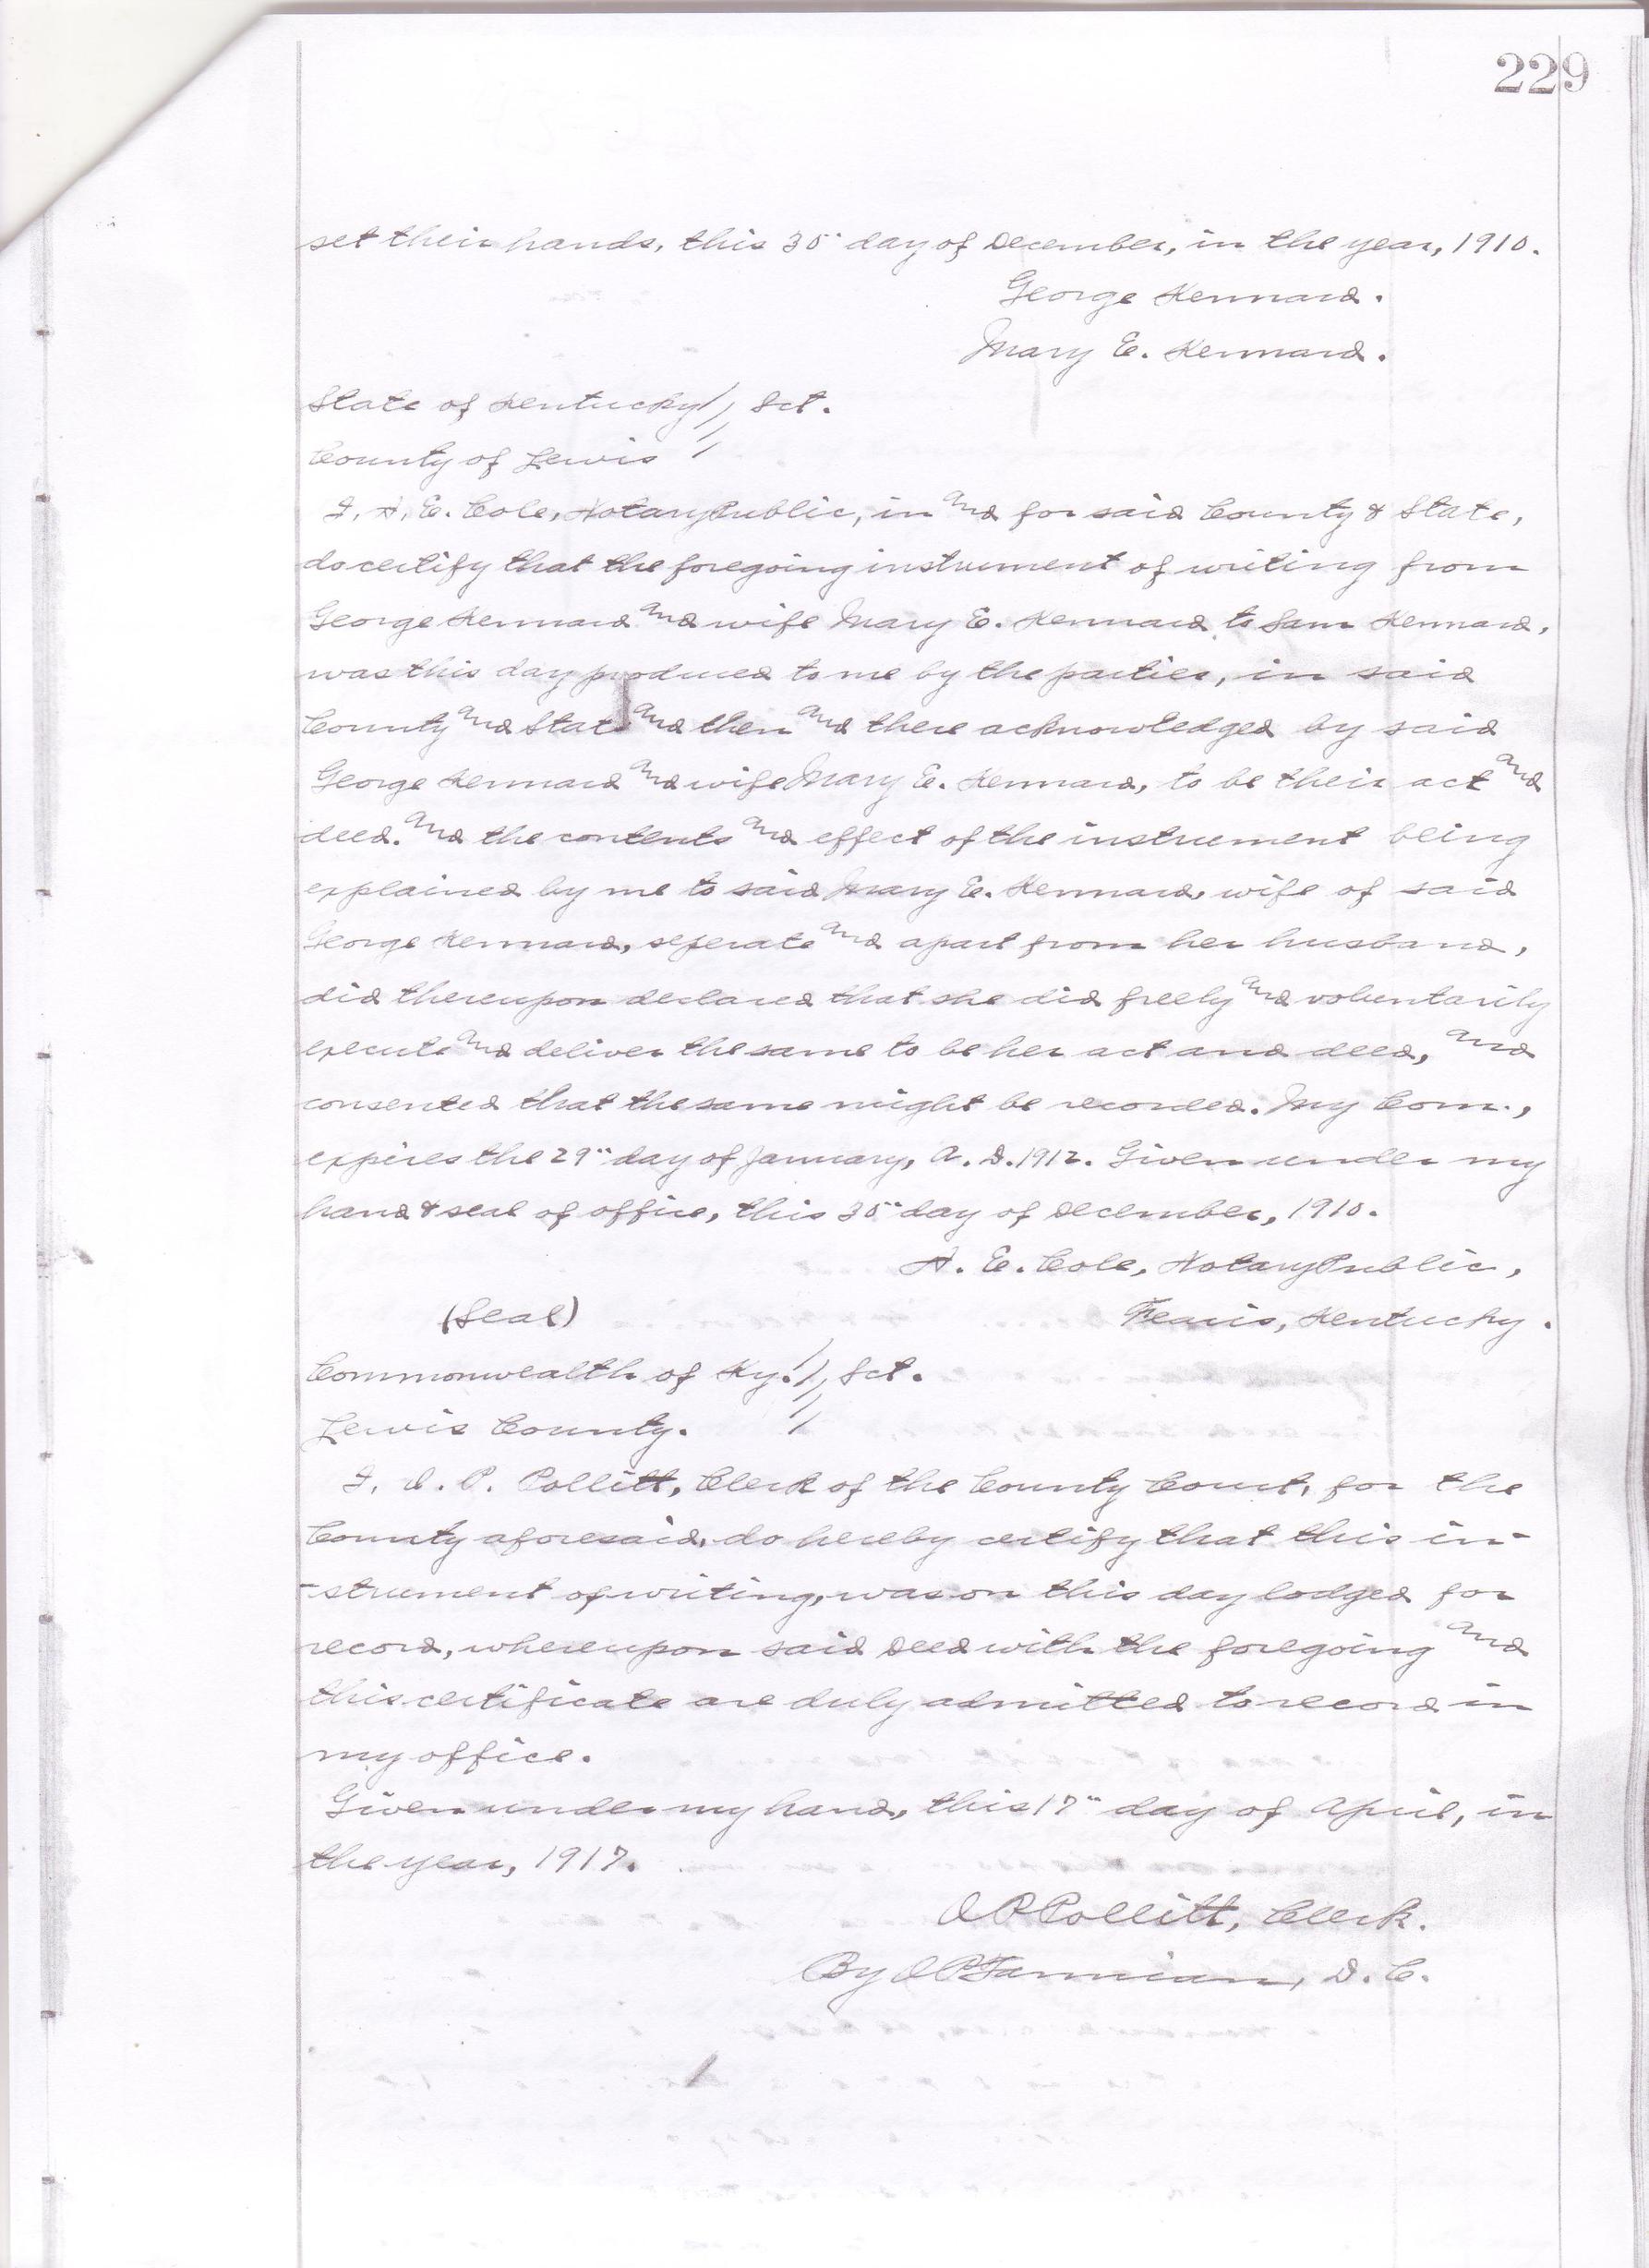 229
set their hands, this 30" day of December, in the year, 1910.
George Kennard.
Mary E. Kennard.
State of Kentucky // Sct.
County of Lewis //
I, A. E. Cole, Notary Public, in and for said County & State,
do certify that the foregoing instrument of writing from
George Kennard and wife Mary E. Kennard to Sam Kennard,
was this day produced to me by the parties, in said
County and State and then and there acknowledged by said
George Kennard and wife Mary E. Kennard, to be their act and
deed. And the contents and effect of the instrument being
explained by me to said Mary E. Kennard, wife of said
George Kennard, seperate and apart from her husband,
did thereupon declared that she did freely and voluntarily
execute and deliver the same to be her act and deed, and
consented that the same might be recorded. My Com.,
expires the 29" day of January, A. D. 1912. Given under my
hand & seal of office, this 30" day of December, 1910.
A. E. Cole, Notary Public,
(Seal) Fearis, Kentucky.
Commonwealth of Ky. // Sct.
Lewis County. //
I, O. P. Pollitt, Clerk of the County Court, for the
County aforesaid, do hereby certify that this in-
-strument of writing, was on this day lodged for
record, whereupon said deed with the foregoing and
this certificate are duly admitted to record in
my office.
Given under my hand, this 17" day of April, in
the year, 1917.
O P Pollitt, Clerk.
By D. C.